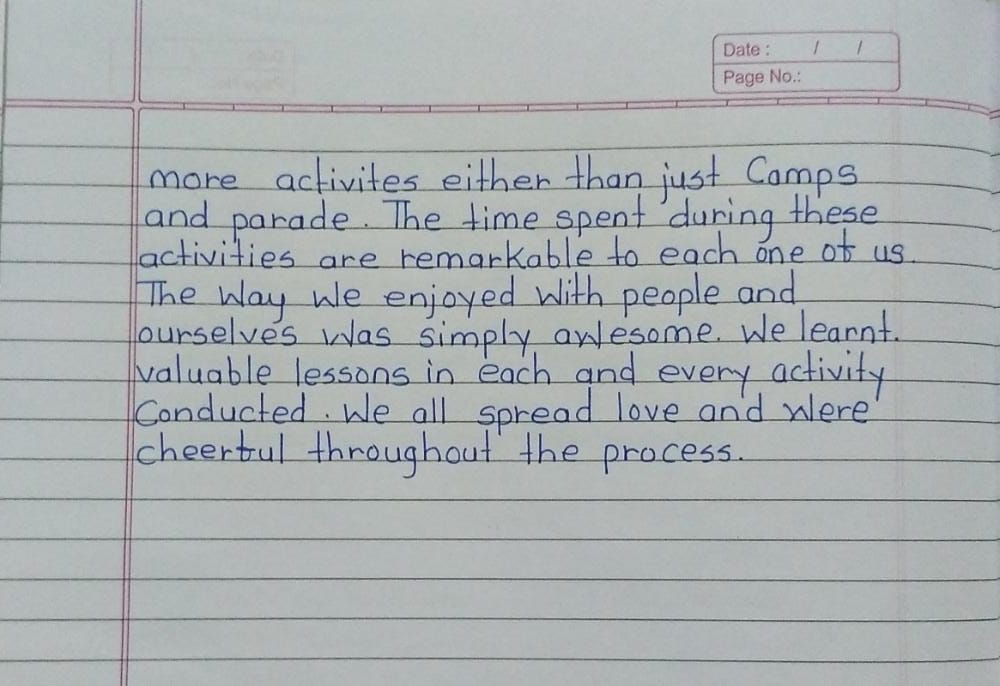 Date : / /
Page No.:
more activites either than just Camps
and parade. The time spent during these
activities are remarkable to each one of us.
The Way We enjoyed With people and
ourselves was simply awesome. We learnt.
valuable lessons in each and every activity
Conducted. We all spread love and were
cheerful throughout the process.